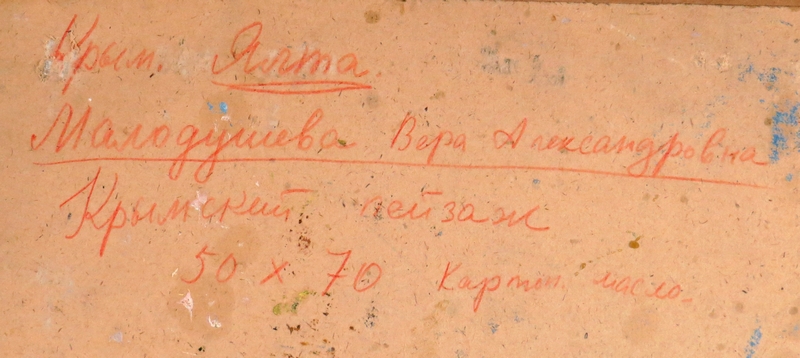 Крым. Ялта.
Малодушева Вера Александровна
Крымский пейзаж
50 х 70 Картон масло.